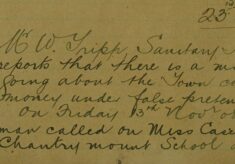 23rd
Mr W. Tripp, Sanitary
reports that there is a m
going about the Town co
money under false preten
On Friday 13th Novr
man called on Miss Case
Chantry mount School